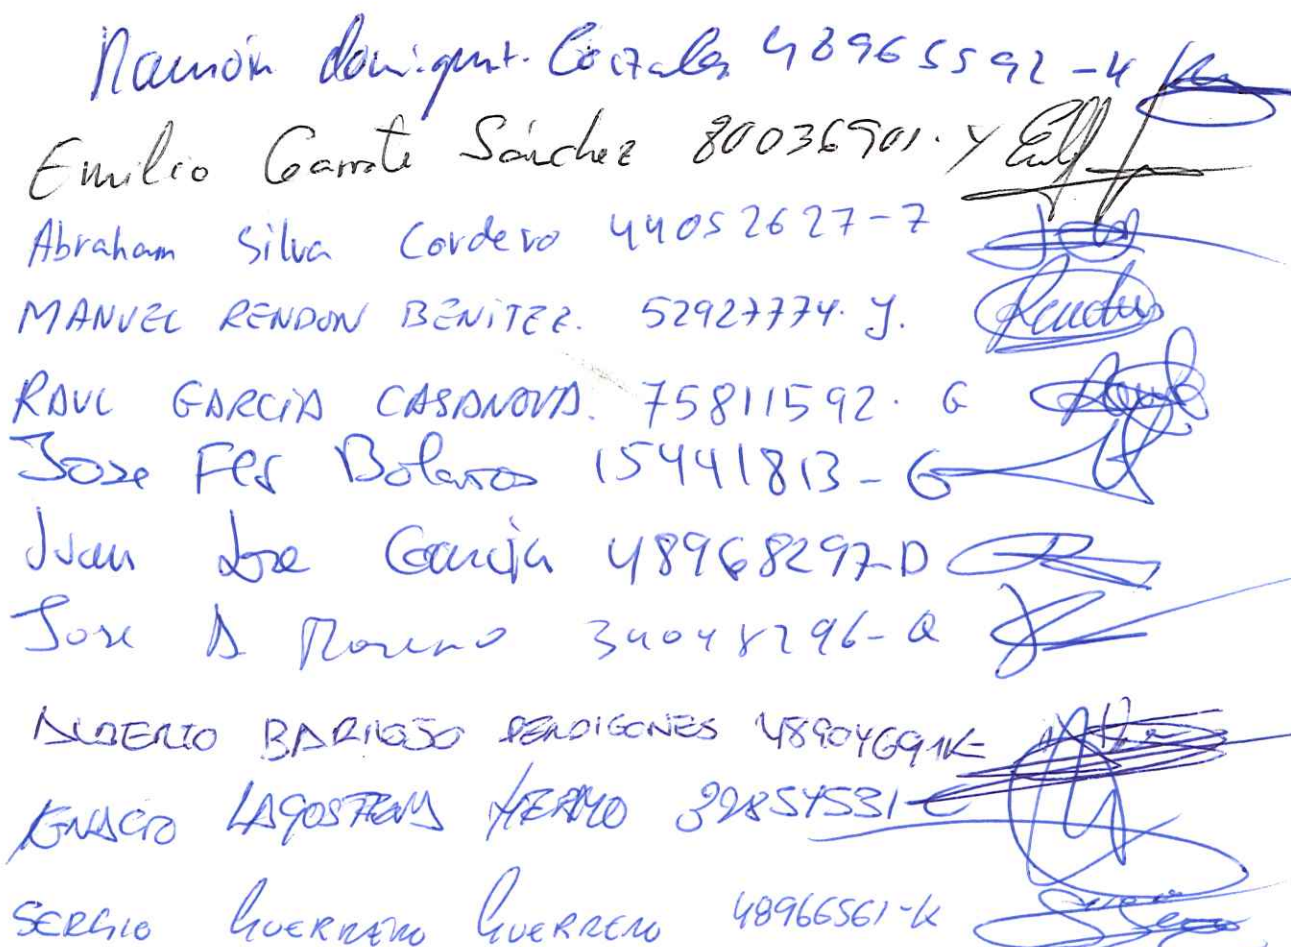 Ramón 48965592-H
Emilio Garrote Sánchez 80036901-Y
Abraham Silva Cordero 44052627-7
MANUEL RENDON BENÍTEZ. 52927774. J.
RAUL GARCIA CASANOVA. 75811592. G
Jose Fer Bolaños 15441813-G
Juan Jose García 48968297-D
Jose A Moreno 34048296-Q
ALBERTO BARROSO PERDIGONES 48904691K
IGNACIO YERMO 32854531-C
SERGIO GUERRERO GUERRERO 48966561-K